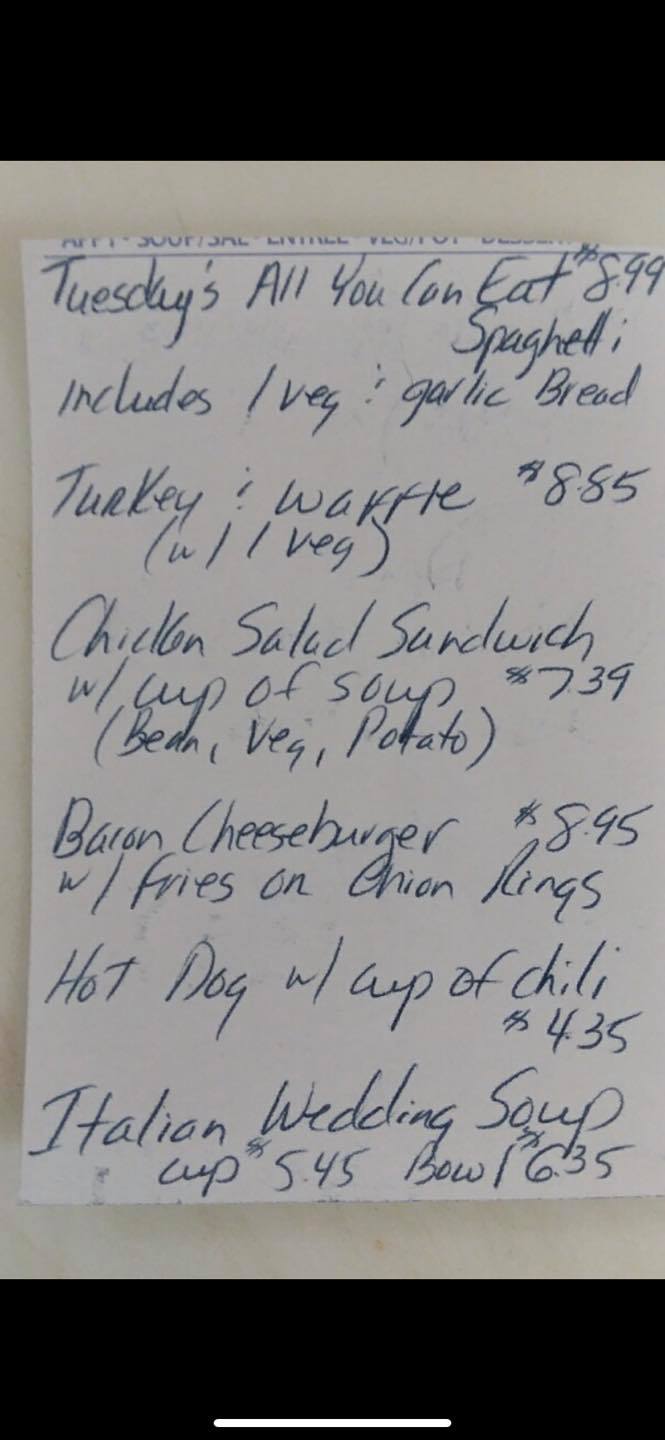 APPT · SOUP/SAL · ENTREE · VEG/POT · DESSERT
Tuesday's All You Can Eat $8.99
Spaghetti
includes 1 veg & garlic Bread
Turkey & Waffle $8.85
(w/ 1 veg)
Chicken Salad Sandwich
w/ cup of soup $7.39
(Bean, Veg, Potato)
Bacon Cheeseburger $8.95
w/ fries or Onion Rings
Hot Dog w/ cup of chili
$4.35
Italian Wedding Soup
cup $5.45 Bowl $6.35